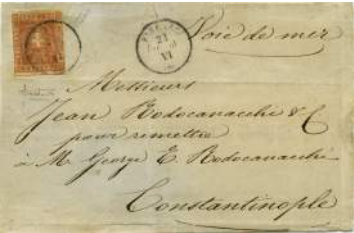 Voie de mer
21
VI
Messieurs
Jean Rodocanacchi & C
pour remettre
à Mr George E. Rodocanacchi
Constantinople